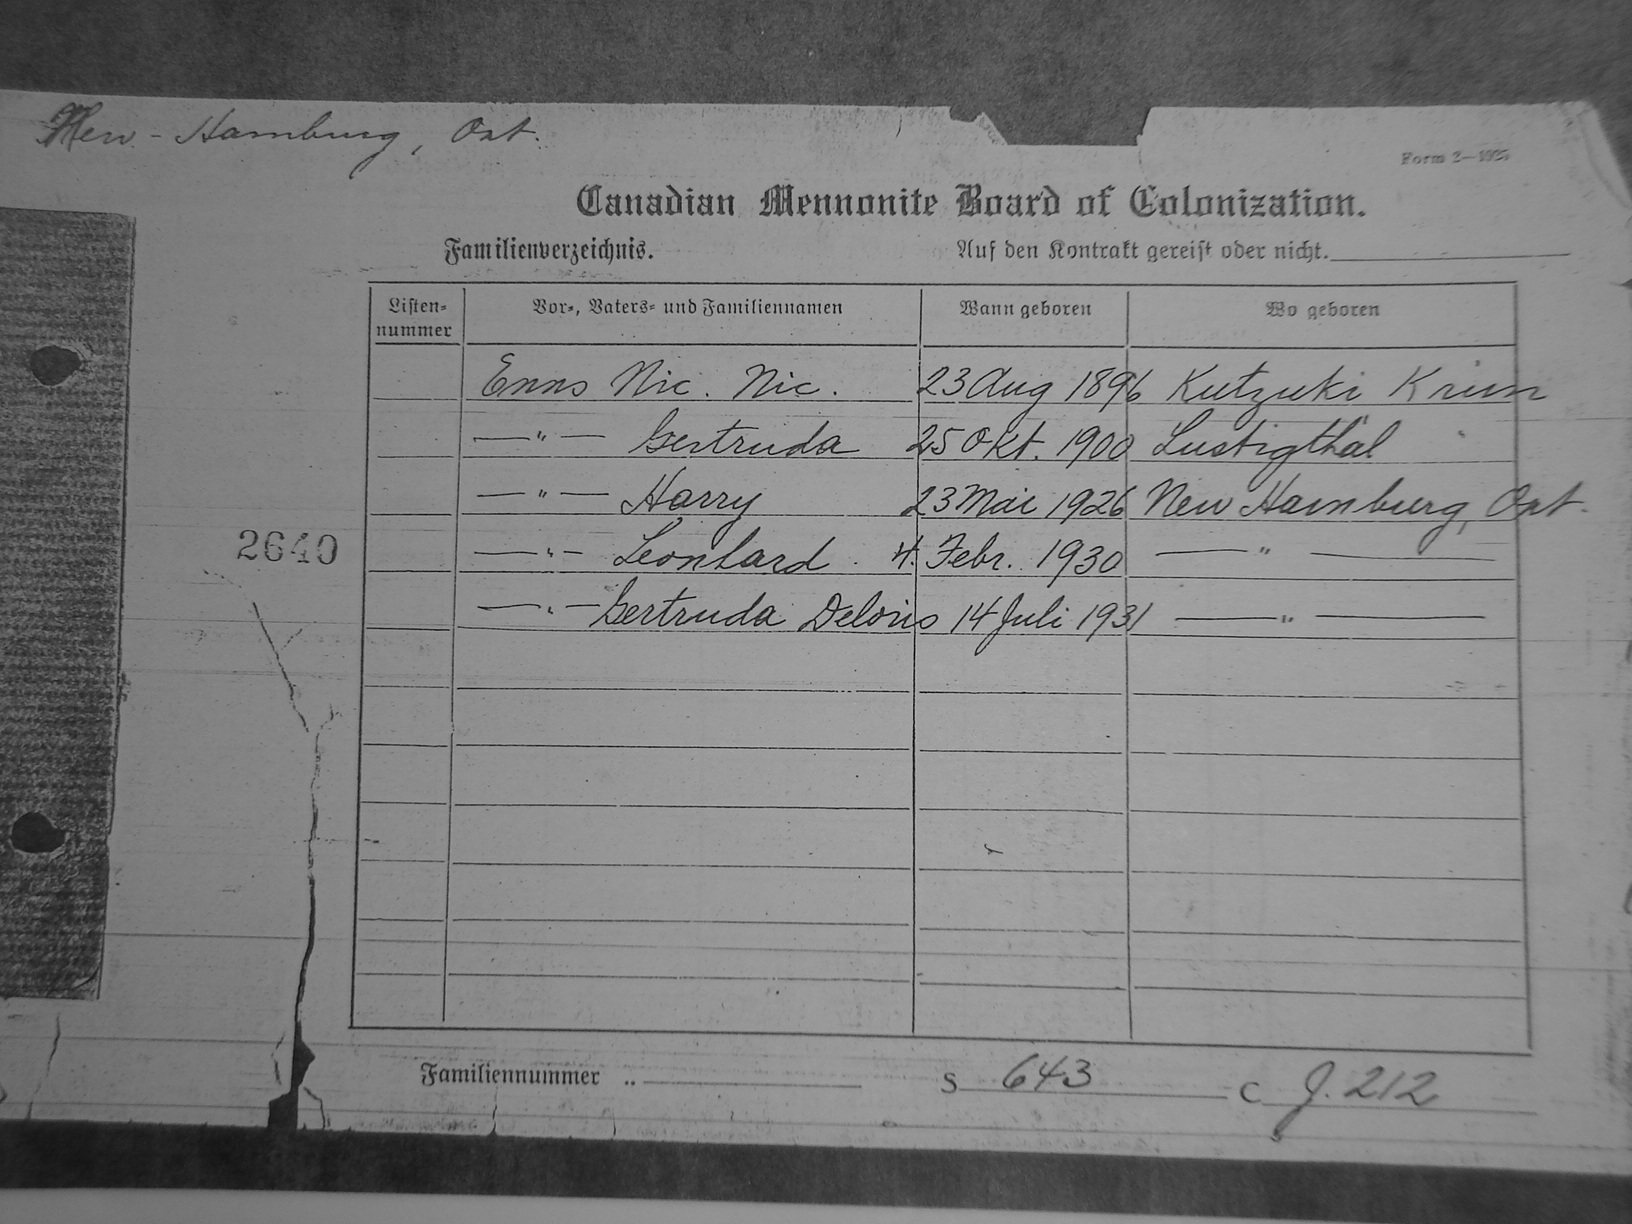 New-Hamburg, Ont.
Form 2—192
Canadian Mennonite Board of Colonization.
Familienverzeichnis. Auf den Kontrakt gereist oder nicht.
Listen-nummer Vor-, Vaters- und Familiennamen Wann geboren Wo geboren
Enns Nic. Nic. 23 Aug 1896 Kutzuki Krim
—"— Gertruda 25 Okt. 1900 Lustigthal
—"— Harry 23 Mai 1926 New Hamburg, Ont.
2640 —"— Leonhard 4. Febr. 1930 —"—
—"— Gertruda Deloris 14 Juli 1931 —"—
Familiennummer .. S 643 C J. 212